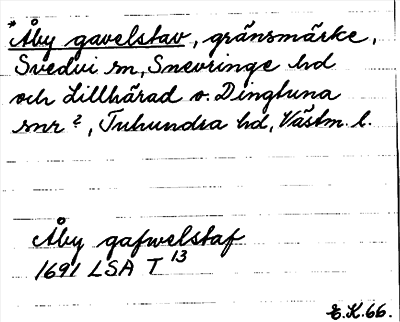 *Åby gavelstav, gränsmärke,
Svedvi sn, Snevringe hd
och Lillhärad o. Dingtuna
snr?, Tuhundra hd, Västm. l.
Åby gafwelstaf
1691 LSA T 13
E.K.66.